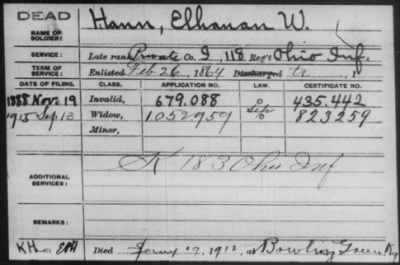 DEAD
NAME OF SOLDIER: Hann, Elhanan W.
SERVICE: Late rank Private Co. I, 118 Reg't Ohio Inf.
TERM OF SERVICE: Enlisted Feb 26, 1864 Discharged
DATE OF FILING. CLASS. APPLICATION NO. LAW. CERTIFICATE NO.
1888 Nov. 19 Invalid, 679.088 435.442
1913 Sep 13 Widow, 1052959 823259
Minor,
ADDITIONAL SERVICES: K 183 Ohio Inf
REMARKS:
KH Died 1912, at Bowling Green Ky